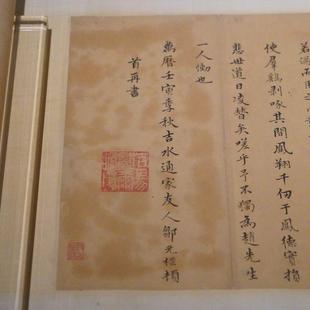 使羣鷄剥啄其間鳳翔千仞于鳳德實損
悲世道日凌替矣嗟乎予不獨為趙先生
一人慟也
萬曆壬寅季秋吉水通家友人鄒元標頓
首再書